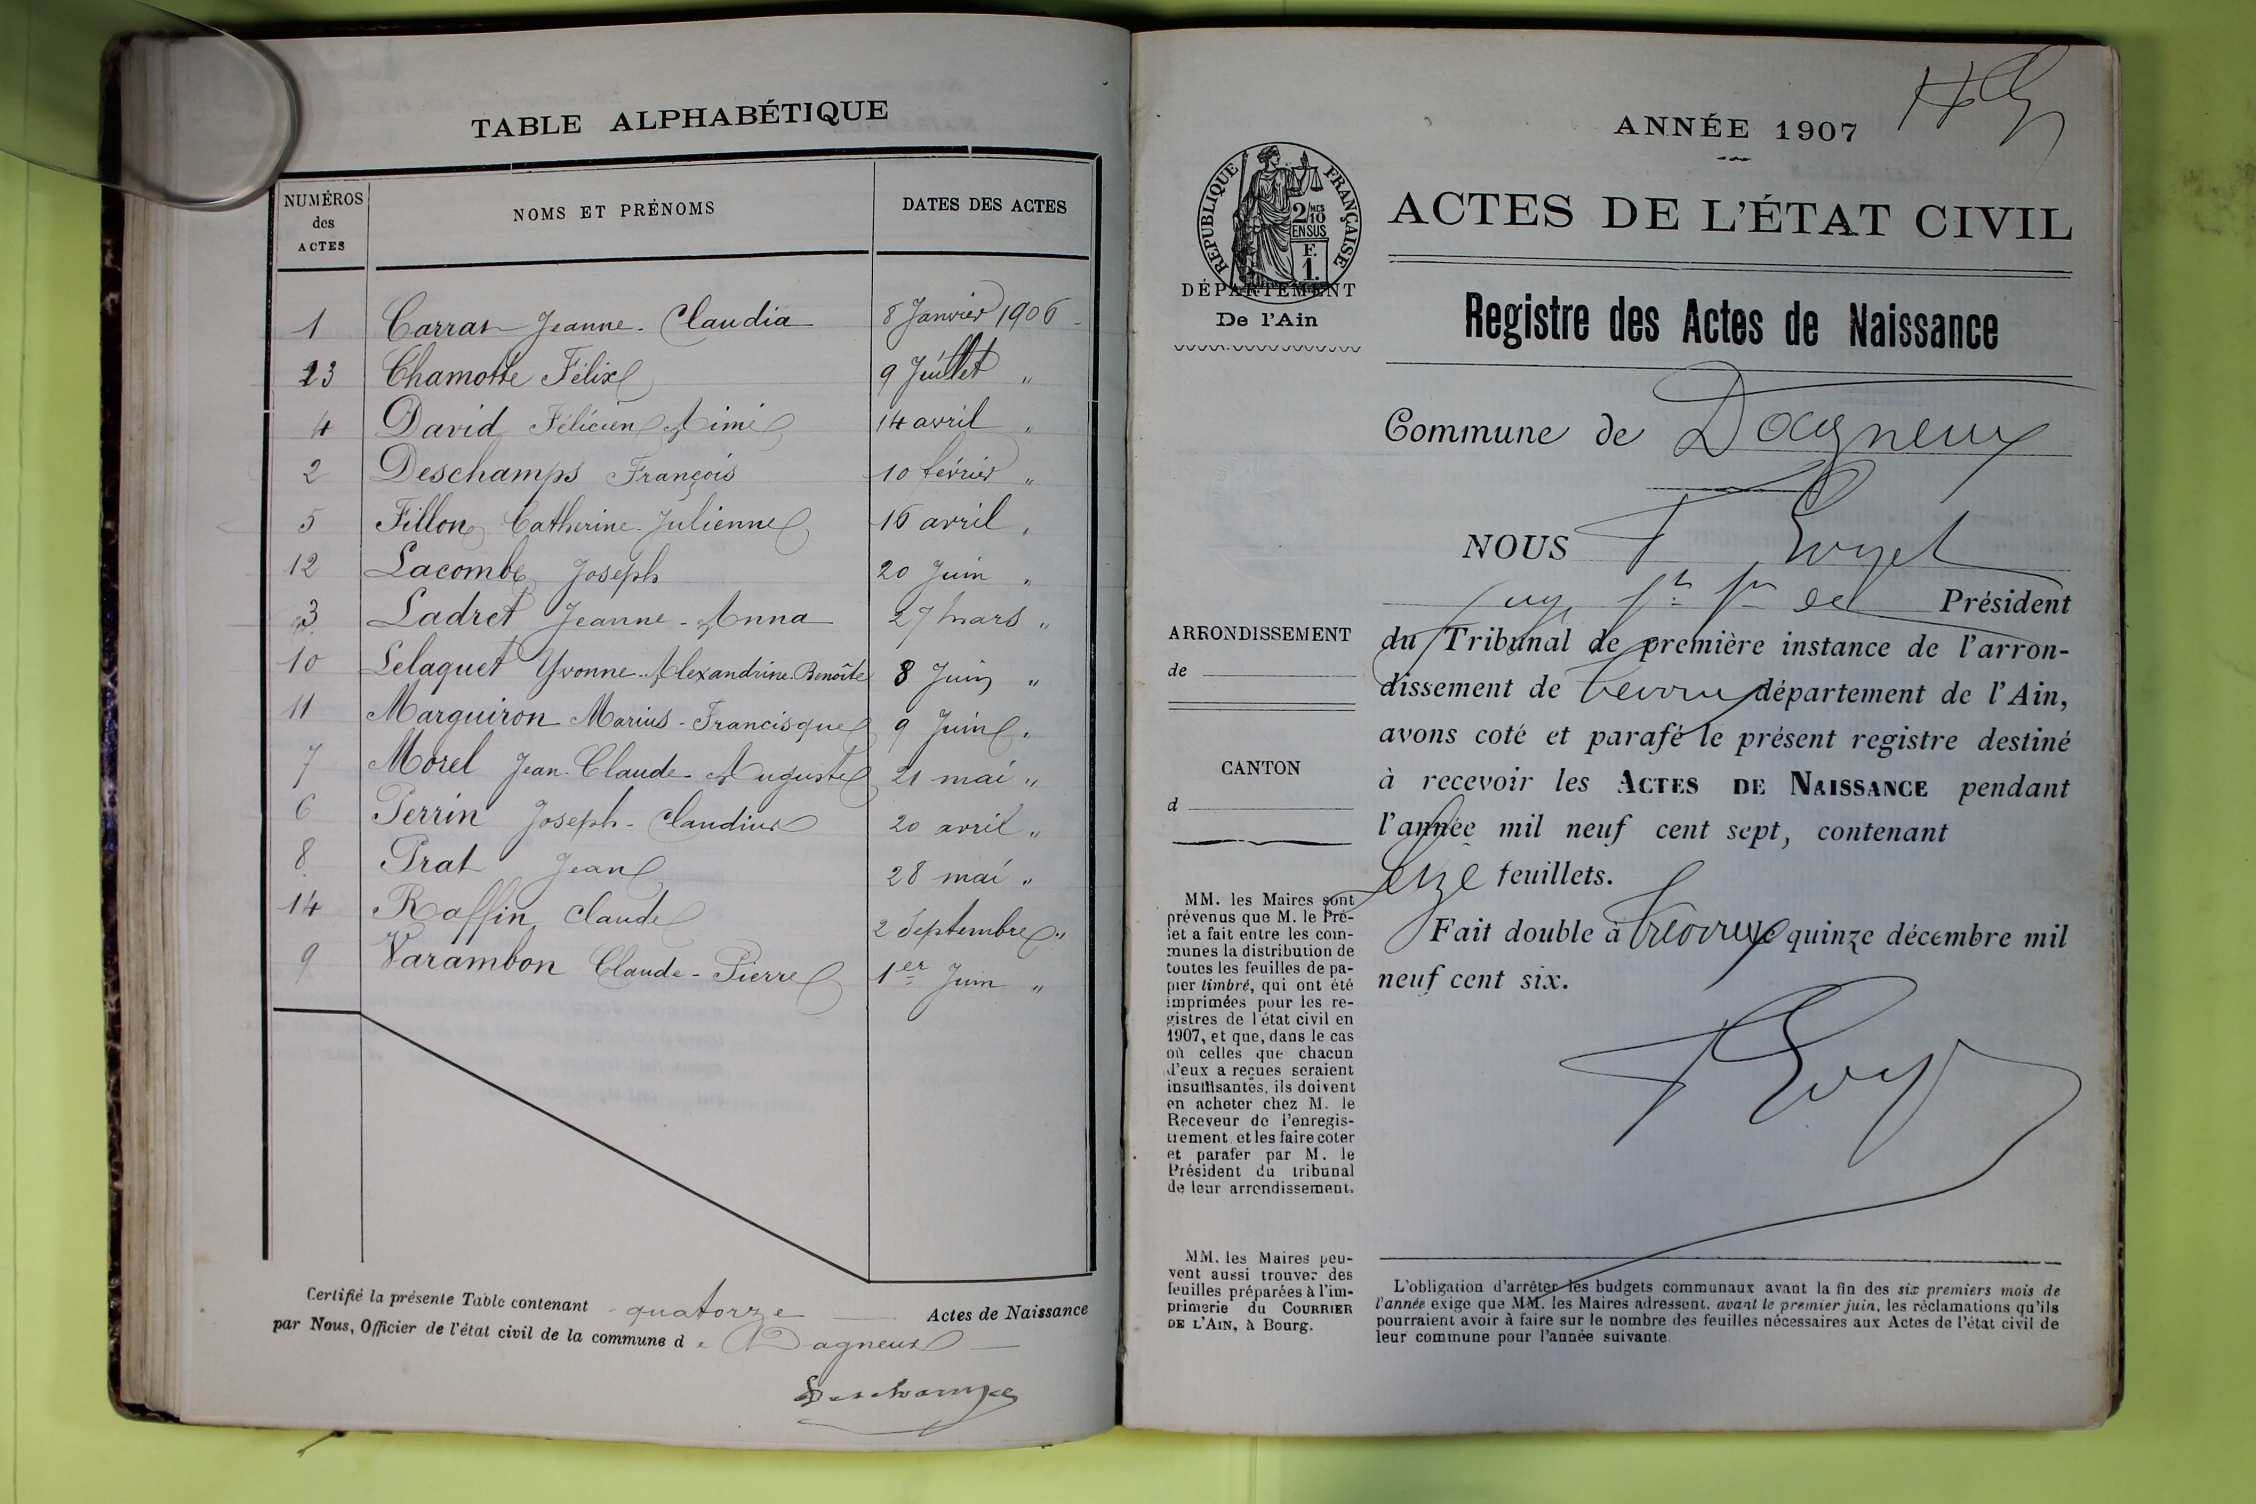 TABLE ALPHABÉTIQUE
NUMÉROS des ACTES NOMS ET PRÉNOMS DATES DES ACTES
1 Carras Jeanne-Claudia 8 Janvier 1906
13 Chamotte Félix 9 Juillet "
4 David Félicien Aimé 14 avril "
2 Deschamps François 10 février "
5 Fillon Catherine-Julienne 16 avril "
12 Lacombe Joseph 20 Juin "
3 Ladret Jeanne-Anna 27 mars "
10 Lelaquet Yvonne-Alexandrine-Benoîte 8 Juin "
11 Marguiron Marius-Francisque 9 Juin "
7 Morel Jean-Claude-Auguste 21 mai "
6 Perrin Joseph-Claudius 20 avril "
8 Prat Jean 28 mai "
14 Raffin Claude 2 Septembre "
9 Varambon Claude-Pierre 1er Juin "
Certifié la présente Table contenant quatorze Actes de Naissance
par Nous, Officier de l'état civil de la commune de Dagneux
Deschamps
ANNÉE 1907
RÉPUBLIQUE FRANÇAISE
2/10 MES
EN SUS
F.
1.
ACTES DE L'ÉTAT CIVIL
DÉPARTEMENT
De l'Ain
Registre des Actes de Naissance
Commune de Dagneux
NOUS
Président
ARRONDISSEMENT
de
du Tribunal de première instance de l'arron-
dissement de Trévoux département de l'Ain,
avons coté et parafé le présent registre destiné
CANTON
d
à recevoir les ACTES DE NAISSANCE pendant
l'année mil neuf cent sept, contenant
seize feuillets.
Fait double à Trévoux quinze décembre mil
neuf cent six.
MM. les Maires sont
prévenus que M. le Pré-
fet a fait entre les com-
munes la distribution de
toutes les feuilles de pa-
pier timbré, qui ont été
imprimées pour les re-
gistres de l'état civil en
1907, et que, dans le cas
où celles que chacun
d'eux a reçues seraient
insuffisantes, ils doivent
en acheter chez M. le
Receveur de l'enregis-
trement et les faire coter
et parafer par M. le
Président du tribunal
de leur arrondissement.
MM. les Maires peu-
vent aussi trouver des
feuilles préparées à l'im-
primerie du COURRIER
DE L'AIN, à Bourg.
L'obligation d'arrêter les budgets communaux avant la fin des six premiers mois de
l'année exige que MM. les Maires adressent, avant le premier juin, les réclamations qu'ils
pourraient avoir à faire sur le nombre des feuilles nécessaires aux Actes de l'état civil de
leur commune pour l'année suivante